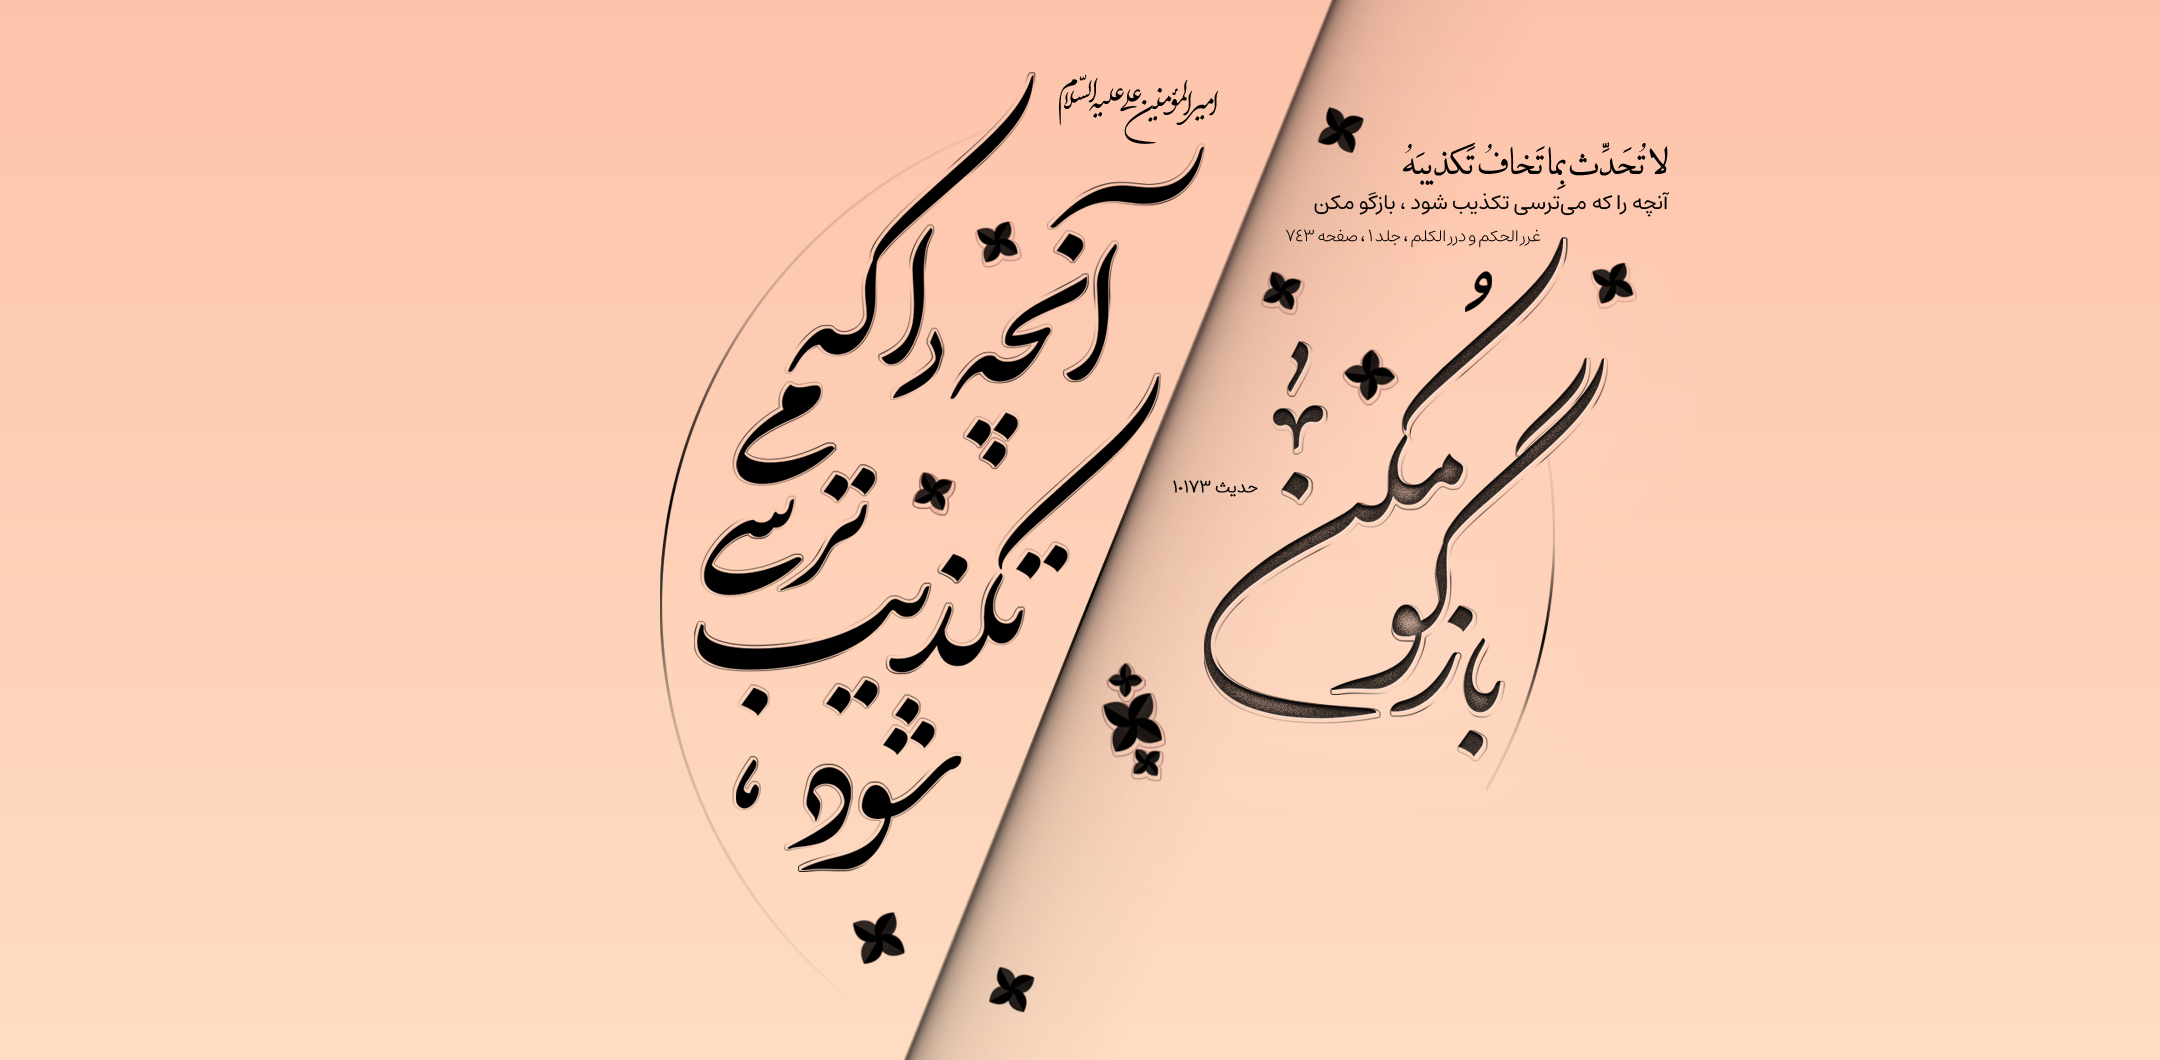 امیرالمؤمنین علی علیه السّلام
آنچه را که
می
ترسی
تکذیب
شود ،
بازگو مکن
لا تُحَدِّث بِما تَخافُ تَکذیبَهُ
آنچه را که می‌ترسی تکذیب شود ، بازگو مکن
غرر الحکم و درر الکلم ، جلد ۱ ، صفحه ٧٤٣
حدیث ۱۰۱۷۳